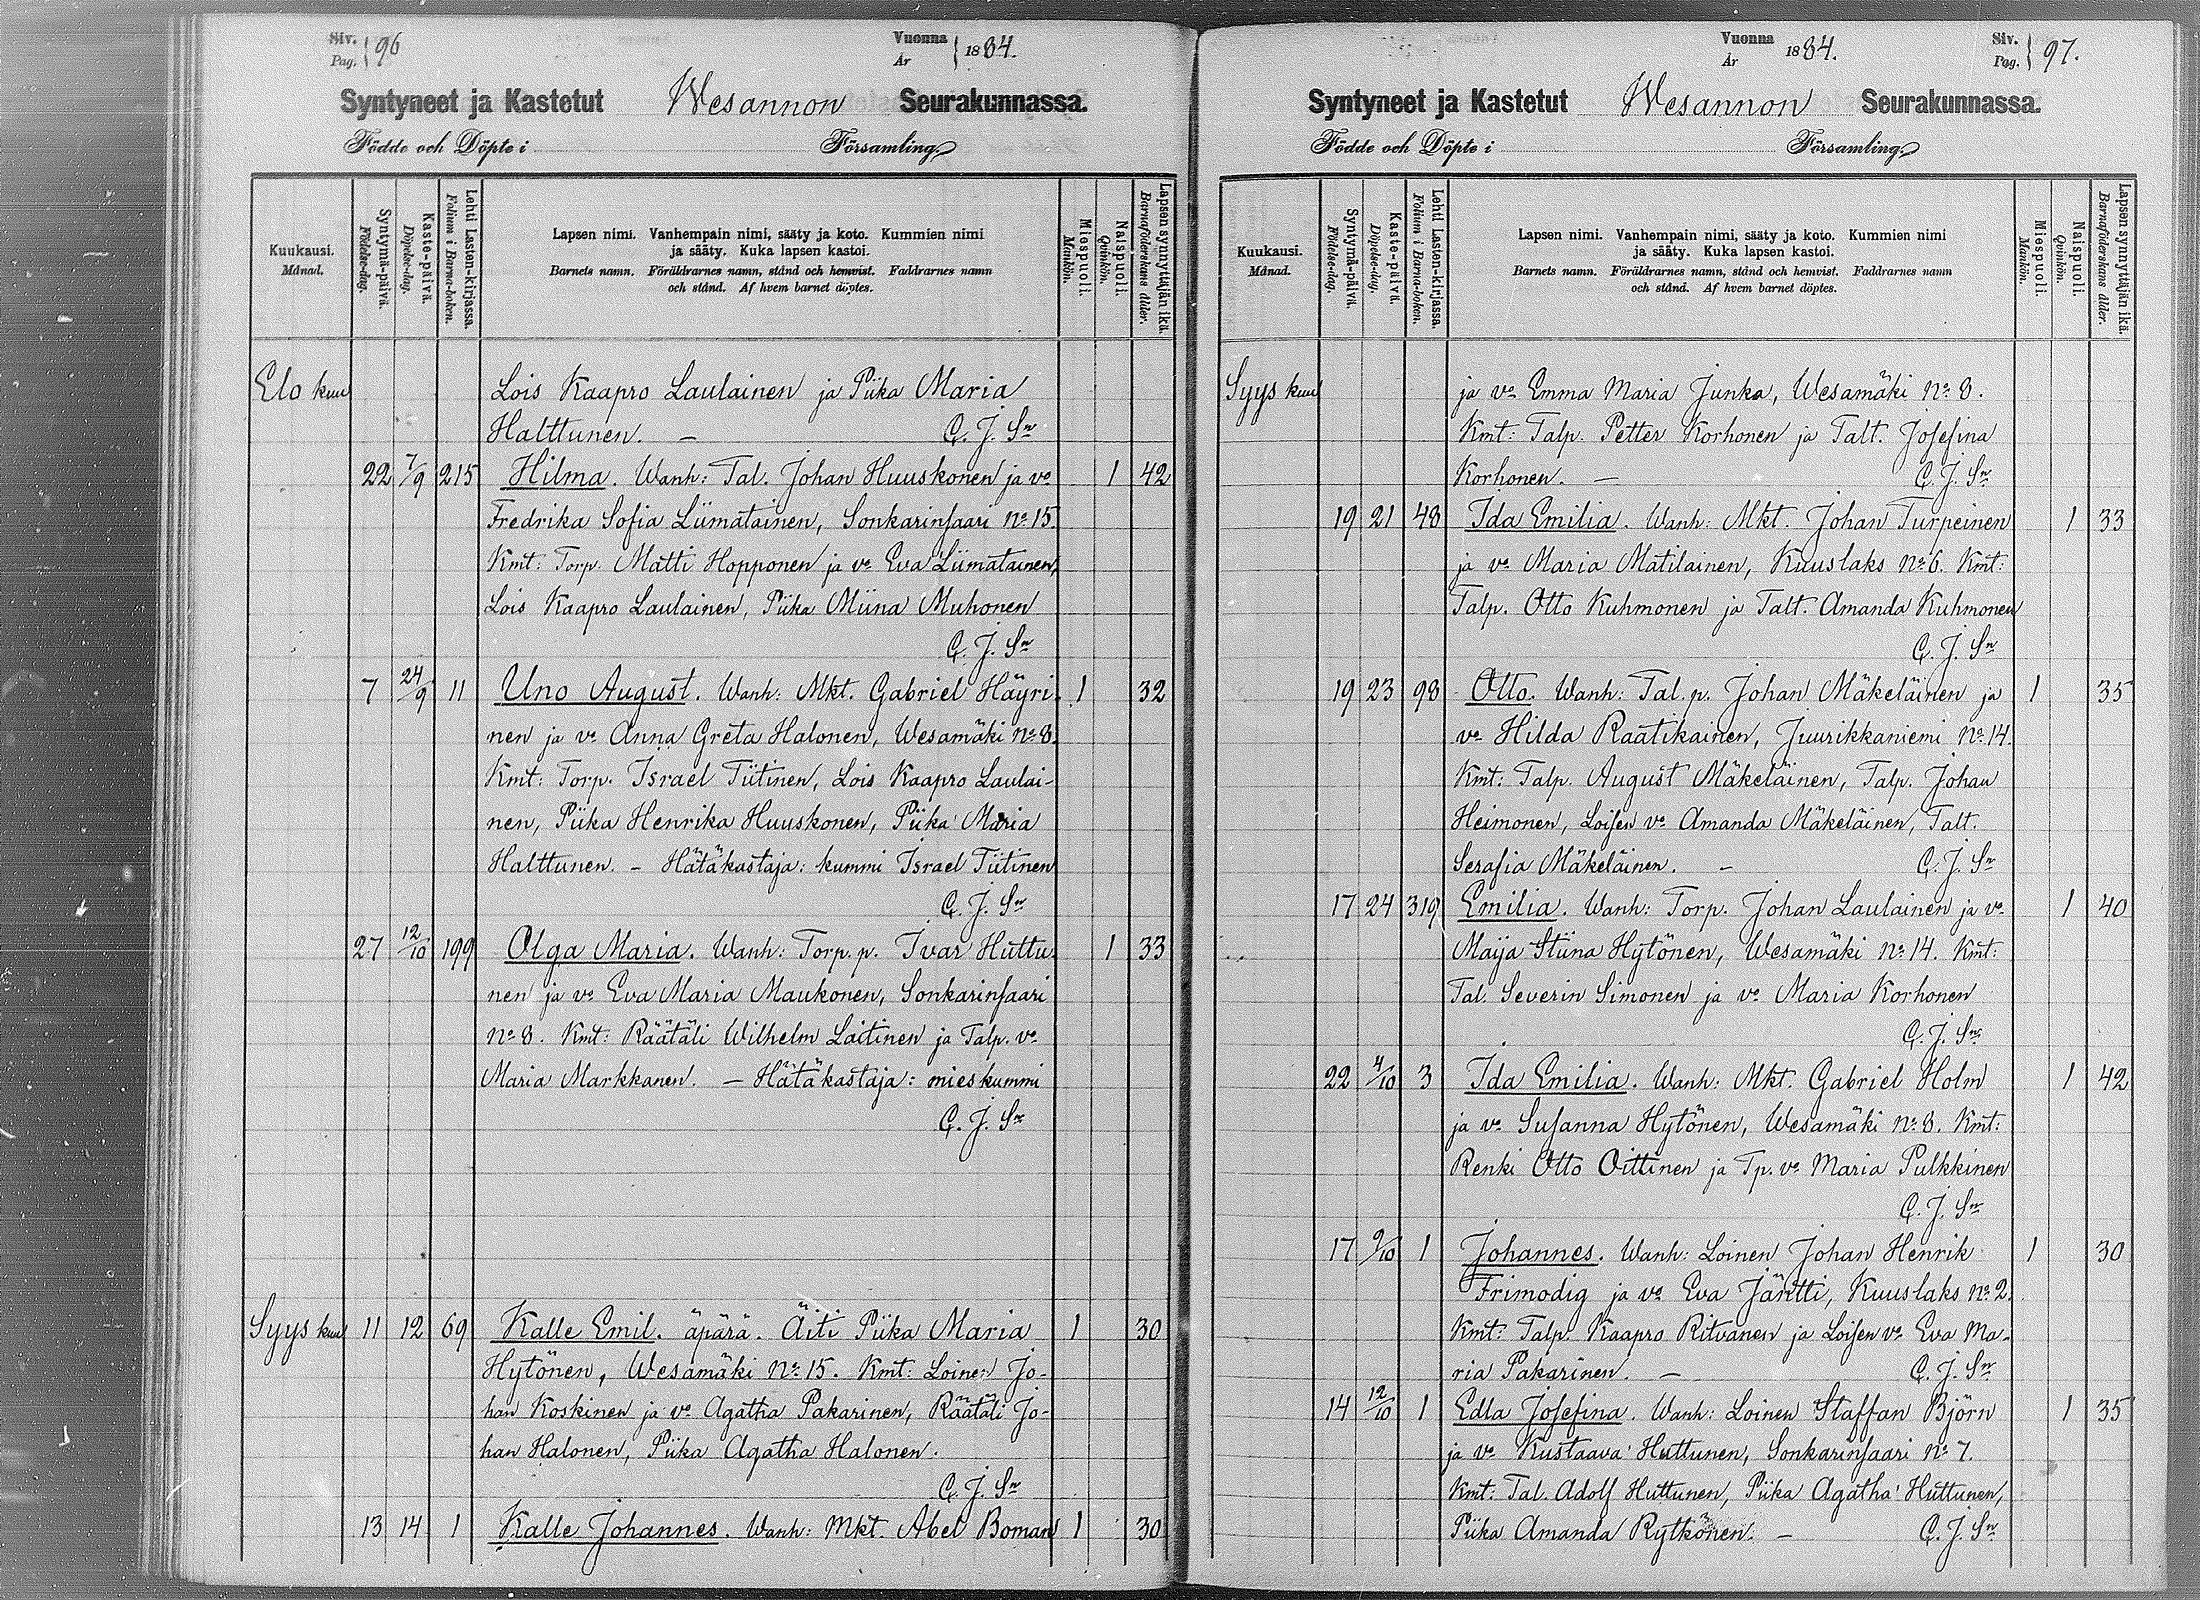 Siv. Pag. 96
Vuonna År 1884.
Syntyneet ja Kastetut Wesannon Seurakunnassa.
Födde och Döpte i Församling.
Kuukausi. Månad.
Syntymä-päivä. Födelse-dag.
Kaste-päivä. Döpelse-dag.
Lehti Lasten-kirjassa. Folium i Barna-boken.
Lapsen nimi. Vanhempain nimi, sääty ja koto. Kummien nimi
ja sääty. Kuka lapsen kastoi.
Barnets namn. Föräldrarnes namn, stånd och hemvist. Faddrarnes namn
och stånd. Af hvem barnet döptes.
Miespuoli. Mankön.
Naispuoli. Qvinkön.
Lapsen synnyttäjän ikä. Barnaföderskans ålder.
Elo kuu Lois Kaapro Laulainen ja Piika Maria
Halttunen. – C. J. Sn
22 7/9 215 Hilma. Wanh: Tal. Johan Huuskonen ja vo 1 42
Fredrika Sofia Liimatainen, Sonkarinsaari No 15.
Kmt: Torp. Matti Hopponen ja vo Eva Liimatainen,
Lois Kaapro Laulainen, Piika Miina Muhonen
C. J. Sn
7 24/9 11 Uno August. Wanh: Mkt. Gabriel Häyri- 1 32
nen ja vo Anna Greta Halonen, Wesamäki No 8.
Kmt: Torp. Israel Tiitinen, Lois Kaapro Laulai-
nen, Piika Henrika Huuskonen, Piika Maria
Halttunen. – Hätäkastaja: kummi Israel Tiitinen
C. J. Sn
27 12/10 199 Olga Maria. Wanh: Torp. p. Ivar Huttu- 1 33
nen ja vo Eva Maria Maukonen, Sonkarinsaari
No 8. Kmt: Räätäli Wilhelm Laitinen ja Talp. vo
Maria Markkanen. – Hätäkastaja: mieskummi
C. J. Sn
Syys kuu 11 12 69 Kalle Emil. äpärä. Äiti Piika Maria 1 30
Hytönen, Wesamäki No 15. Kmt: Loinen Jo-
han Koskinen ja vo Agatha Pakarinen, Räätäli Jo-
han Halonen, Piika Agatha Halonen.
C. J. Sn
13 14 1 Kalle Johannes. Wanh: Mkt. Abel Boman 1 30
Vuonna År 1884.
Siv. Pag. 97.
Syntyneet ja Kastetut Wesannon Seurakunnassa.
Födde och Döpte i Församling.
Kuukausi. Månad.
Syntymä-päivä. Födelse-dag.
Kaste-päivä. Döpelse-dag.
Lehti Lasten-kirjassa. Folium i Barna-boken.
Lapsen nimi. Vanhempain nimi, sääty ja koto. Kummien nimi
ja sääty. Kuka lapsen kastoi.
Barnets namn. Föräldrarnes namn, stånd och hemvist. Faddrarnes namn
och stånd. Af hvem barnet döptes.
Miespuoli. Mankön.
Naispuoli. Qvinkön.
Lapsen synnyttäjän ikä. Barnaföderskans ålder.
Syys kuu ja vo Emma Maria Junka, Wesamäki No 8.
Kmt: Talp. Petter Korhonen ja Talt. Josefina
Korhonen. – C. J. Sn
19 21 48 Ida Emilia. Wanh: Mkt. Johan Turpeinen 1 33
ja vo Maria Matilainen, Kuuslaks No 6. Kmt:
Talp. Otto Kuhmonen ja Talt. Amanda Kuhmonen
C. J. Sn
19 23 98 Otto. Wanh: Tal. p. Johan Mäkeläinen ja 1 35
vo Hilda Raatikainen, Juurikkaniemi No 14.
Kmt: Talp. August Mäkeläinen, Talp. Johan
Heimonen, Loisen vo Amanda Mäkeläinen, Talt.
Serafia Mäkeläinen. – C. J. Sn
17 24 319 Emilia. Wanh: Torp. Johan Laulainen ja vo 1 40
Maija Stiina Hytönen, Wesamäki No 14. Kmt:
Tal. Severin Simonen ja vo Maria Korhonen
C. J. Sn
22 4/10 3 Ida Emilia. Wanh: Mkt. Gabriel Holm 1 42
ja vo Susanna Hytönen, Wesamäki No 8. Kmt:
Renki Otto Oittinen ja Tp. vo Maria Pulkkinen
C. J. Sn
17 9/10 1 Johannes. Wanh: Loinen Johan Henrik 1 30
Frimodig ja vo Eva Jäntti, Kuuslaks No 2.
Kmt: Talp. Kaapro Ritvanen ja Loisen vo Eva Ma-
ria Pakarinen. – C. J. Sn
14 12/10 1 Edla Josefina. Wanh: Loinen Staffan Björn 1 35
ja vo Kustaava Huttunen, Sonkarinsaari No 7.
Kmt: Tal. Adolf Huttunen, Piika Agatha Huttunen,
Piika Amanda Rytkönen. – C. J. Sn